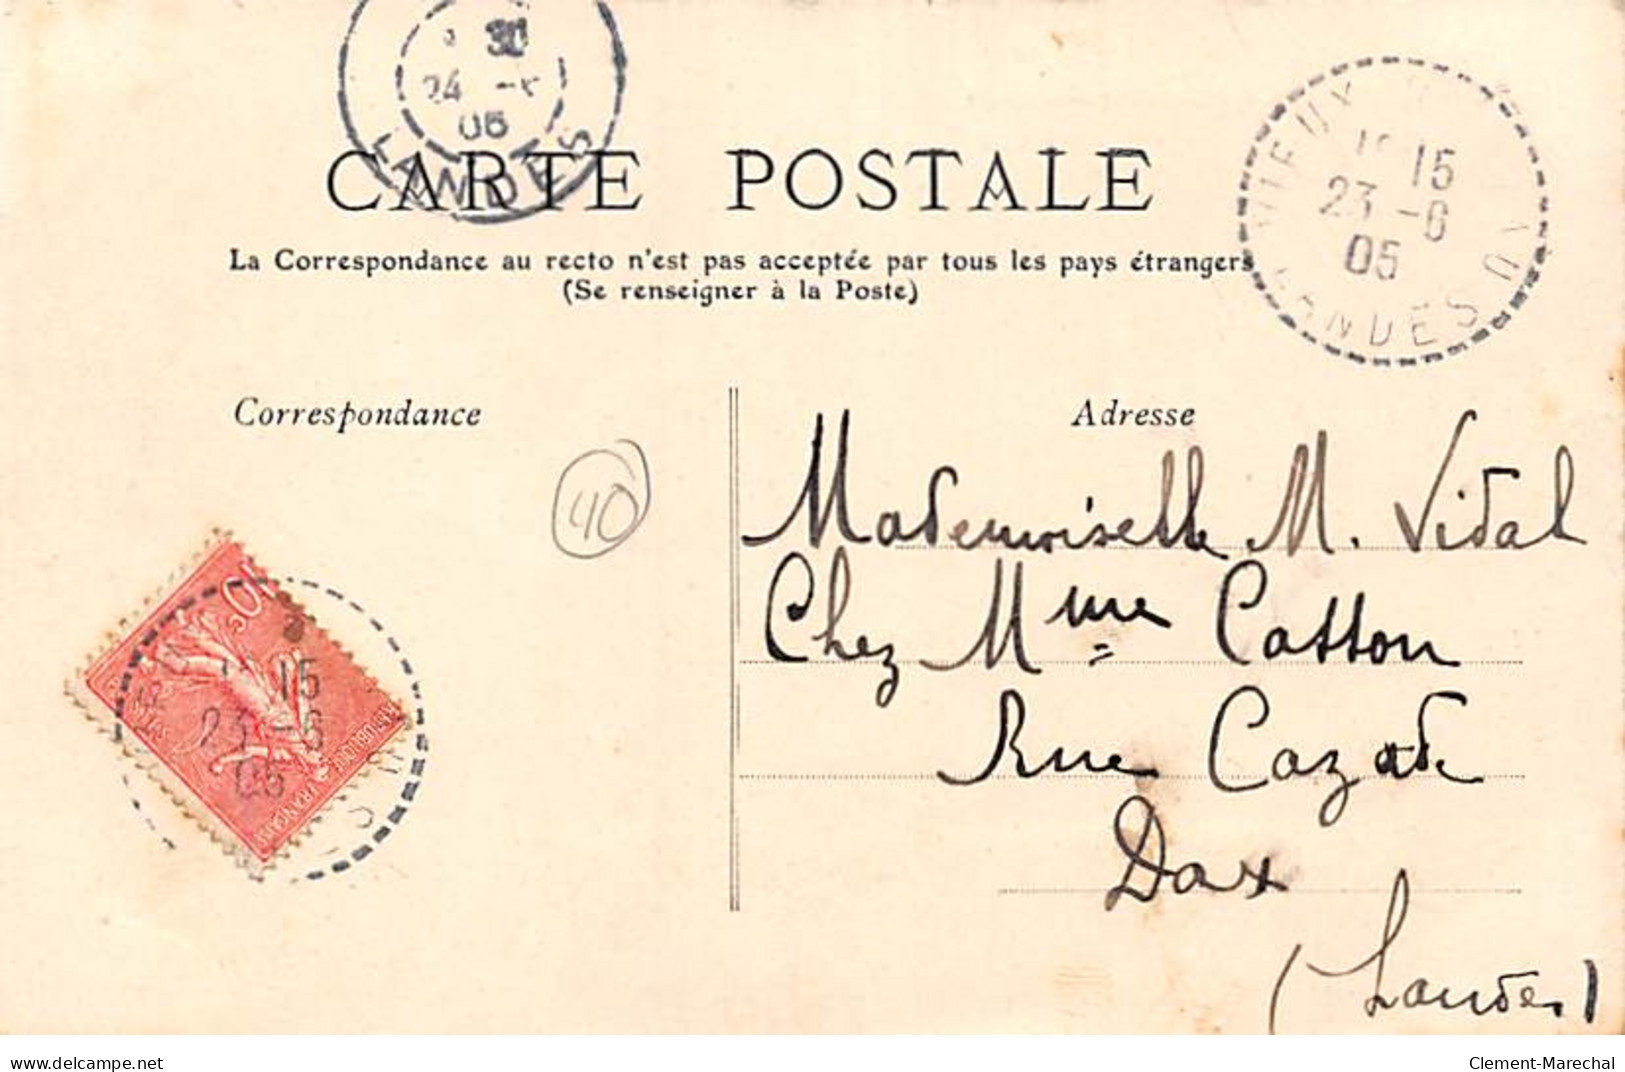 30
24 -6
05
LANDES
CARTE POSTALE
VIEUX
15
23 -6
05
LANDES
La Correspondance au recto n'est pas acceptée par tous les pays étrangers
(Se renseigner à la Poste)
Correspondance
Adresse
40
Mademoiselle M. Vidal
Chez Mme Catton
Rue Cazade
Dax
(Landes)
10
15
23 -6
05
REPUBLIQUE FRANÇAISE
www.delcampe.net
Clement-Marechal